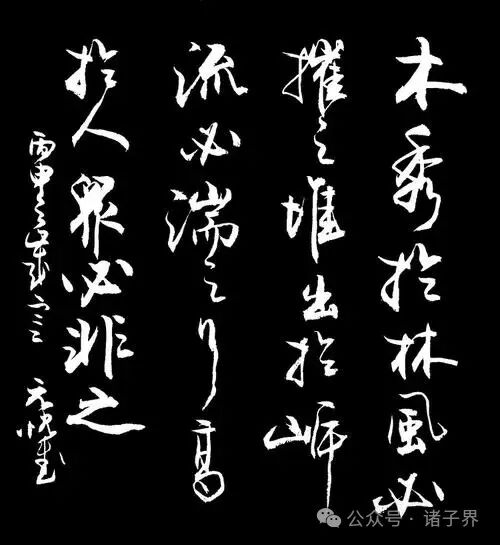 木秀於林風必
摧之堆出於岸
流必湍之行高
於人眾必非之
丙申之歲
公众号 · 诸子界